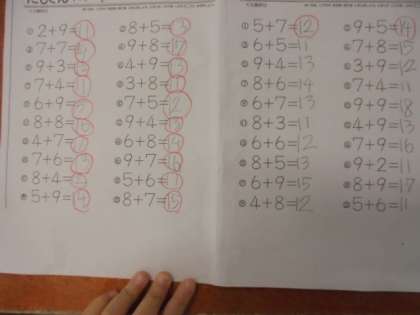 ① 2+9=11
7+7=14
9+3=12
7+4=11
6+9=15
8+8=16
4+7=11
7+6=13
8+4=12
5+9=14
8+5=13
9+8=17
4+9=13
3+8=11
7+5=12
9+4=13
6+8=14
9+7=16
5+6=11
8+7=15
① 5+7=12
6+5=11
9+4=13
8+6=14
6+7=13
8+3=11
6+6=12
8+5=13
6+9=15
4+8=12
9+5=14
7+8=15
3+9=12
7+4=11
9+9=18
4+9=13
7+9=16
9+2=11
8+9=17
5+6=11